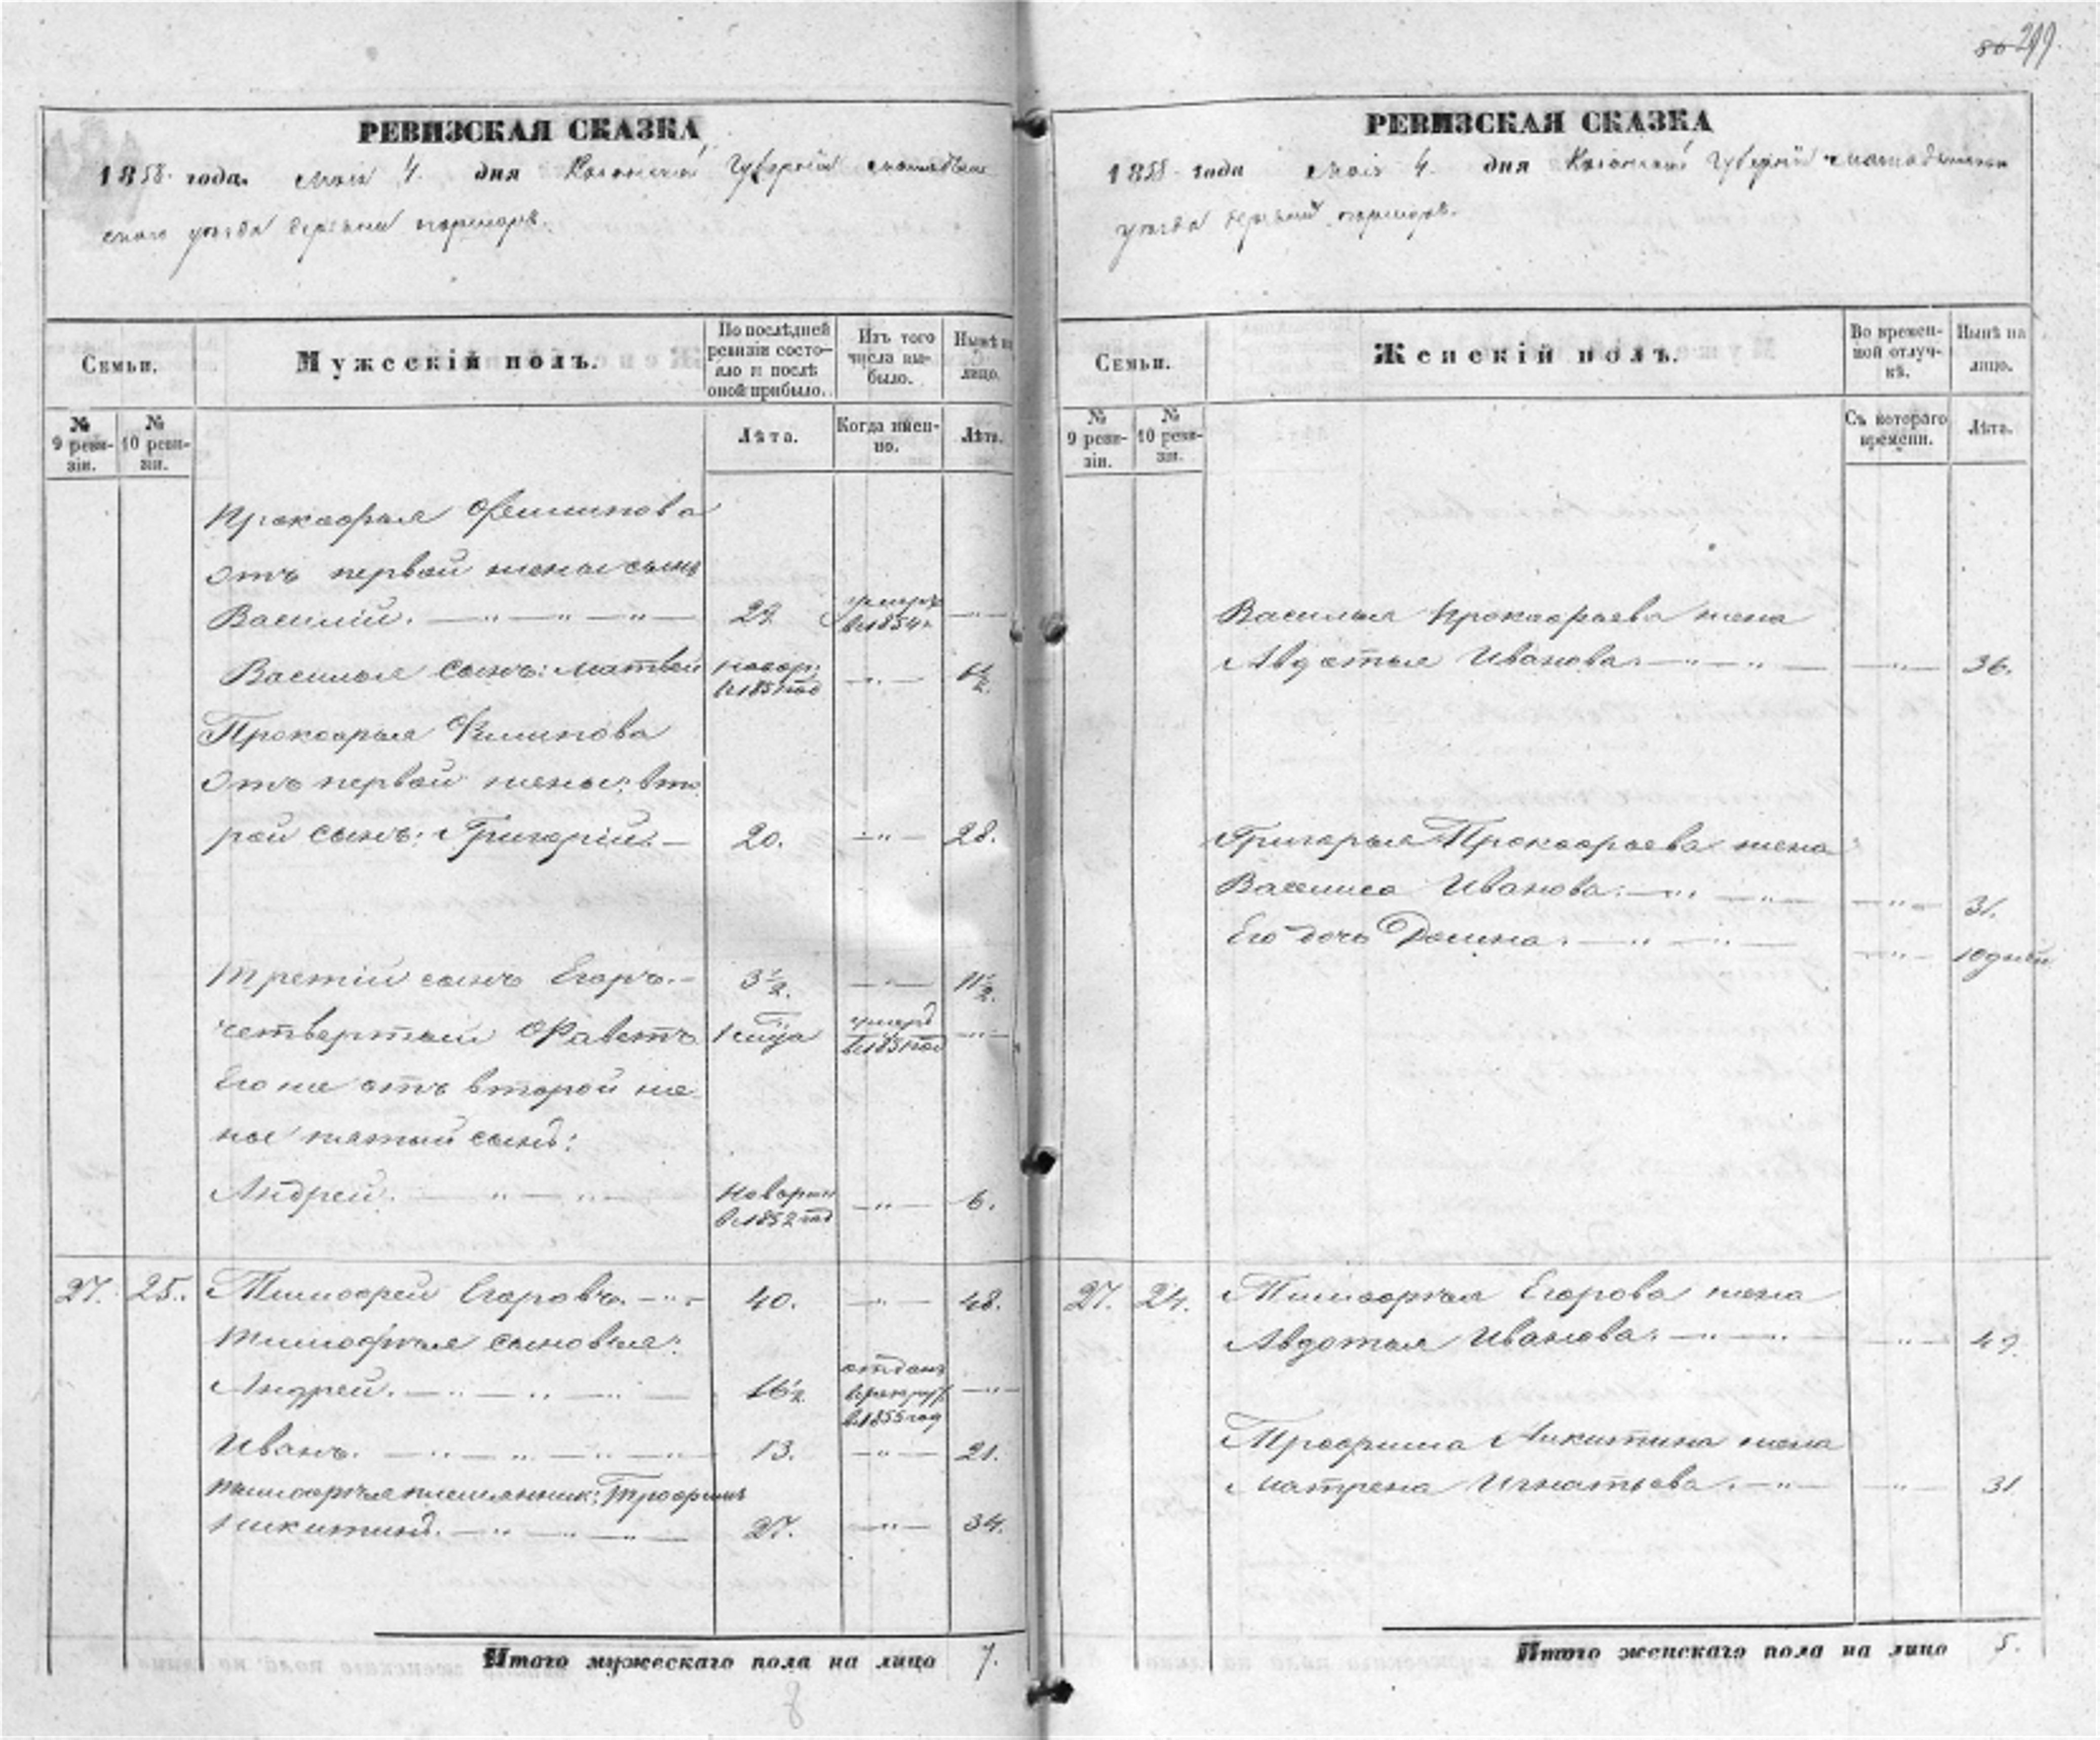 299.
РЕВИЗСКАЯ СКАЗКА
1858. года. Маiя 4. дня Казанской Губернiи Мамадыш
скаго уѣзда деревни
Семьи.
Мужескiй полъ.
По послѣдней ревизiи состо-
яло и послѣ оной прибыло.
Изъ того числа вы-
было.
Нынѣ на лицо.
№ 9 реви-
зiи.
№ 10 реви-
зiи.
Лѣта.
Когда имен-
но.
Лѣта.
Прокофья Филипова
отъ первой жены сынъ
Василiй. 29 умеръ в 1854 г.
Василья сынъ: Матвей новор: 6½.
Прокофья Филипова
отъ первой жены: вто
рой сынъ: Григорiй. 20. 28.
третiй сынъ Егоръ. 3½. 11½.
четвертый Фавстъ 1 умеръ
Его же отъ второй же
ны пятый сынъ:
Андрей. новорж в 1852 год 6.
27. 25. Тимофей Егоровъ. 40. 48.
Тимофѣя сыновья:
Андрей. 16½ отданъ в рекрут в 1855 год
Иванъ. 13. 21.
Тимофѣя племянник: Трофимъ
Никитинъ. 27. 34.
Итого мужескаго пола на лицо 7.
8
РЕВИЗСКАЯ СКАЗКА
1858. года Маiя 4. дня Казанской Губернiи Мамадышскаго
уѣзда деревни
Семьи.
Женскiй полъ.
Во времен-
ной отлуч-
кѣ.
Нынѣ на лицо.
№ 9 реви-
зiи.
№ 10 реви-
зiи.
Съ котораго времени.
Лѣта.
Василья Прокофьева жена
Авдотья Иванова. 36.
Григорья Прокофьева жена
Васлиса Иванова. 31.
Его дочь Домна. 10 дней
27. 24. Тимофѣя Егорова жена
Авдотья Иванова. 49.
Трофима Никитина жена
Матрена Игнатьева. 31
Итого женскаго пола на лицо 5.